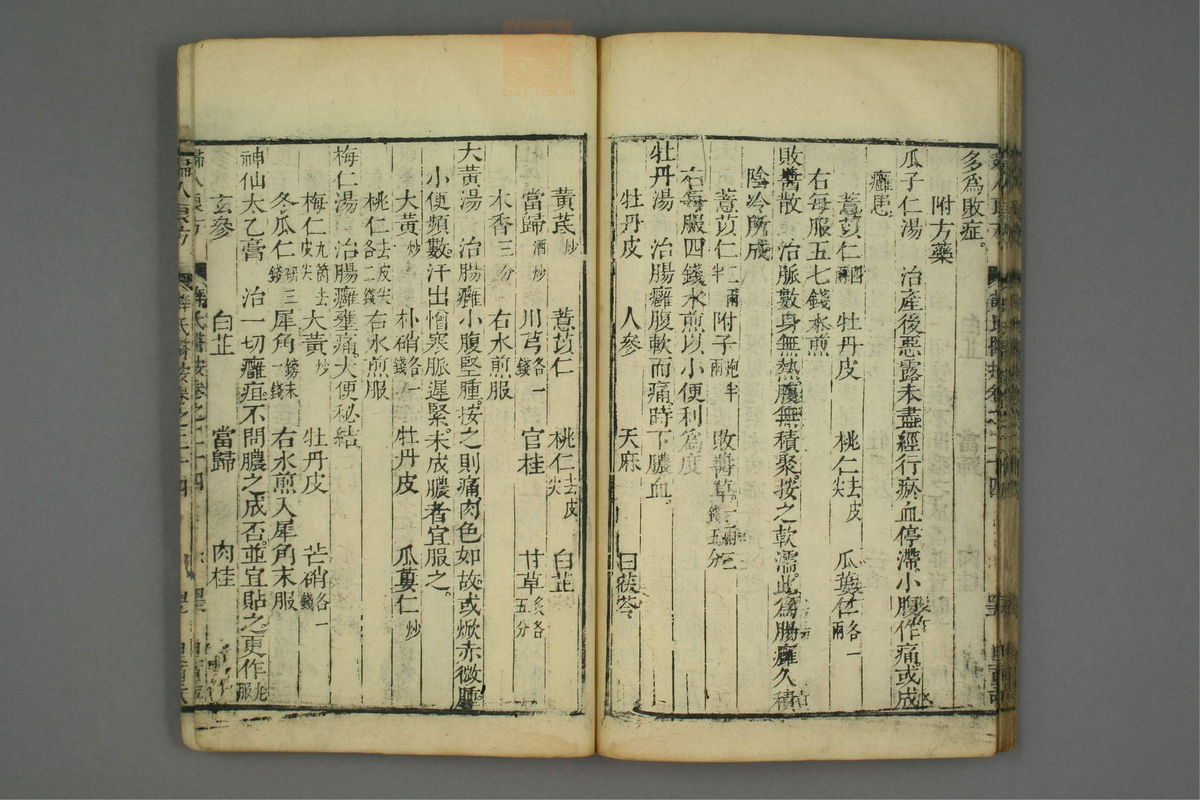 多為敗症。
附方藥
瓜子仁湯　治產後惡露未盡經行瘀血停滯小腹作痛或成
癰患
薏苡仁四兩　牡丹皮　桃仁去皮尖　瓜蔞仁各一兩
右每服五七錢水煎
敗醬散　治脈數身無熱腹無積聚按之軟濡此為腸癰久積
陰冷所成
薏苡仁二兩半　附子炮半兩　敗醬草
右每服四錢水煎以小便利為度
牡丹湯　治腸癰腹軟而痛時下膿血。
牡丹皮　人參　天麻　白茯苓
黃芪炒　薏苡仁　桃仁去皮尖　白芷
當歸酒炒　川芎各一錢　官桂　甘草炙各五分
木香三分　右水煎服
大黃湯　治腸癰小腹堅腫。按之則痛肉色如故或焮赤微腫
小便頻數。汗出憎寒脈遲緊。未成膿者宜服之。
大黃炒　朴硝各一錢　牡丹皮　瓜蔞仁炒
桃仁去皮尖各二錢　右水煎服
梅仁湯　治腸癰壅痛大便秘結
梅仁九箇去皮尖　大黃炒　牡丹皮　芒硝各一錢
冬瓜仁研三錢　犀角鎊末一錢　右水煎入犀角末服
神仙太乙膏　治一切癰疽。不問膿之成否。並宜貼之。更作丸服
玄參　白芷　當歸　肉桂
薛氏醫按卷之二十四